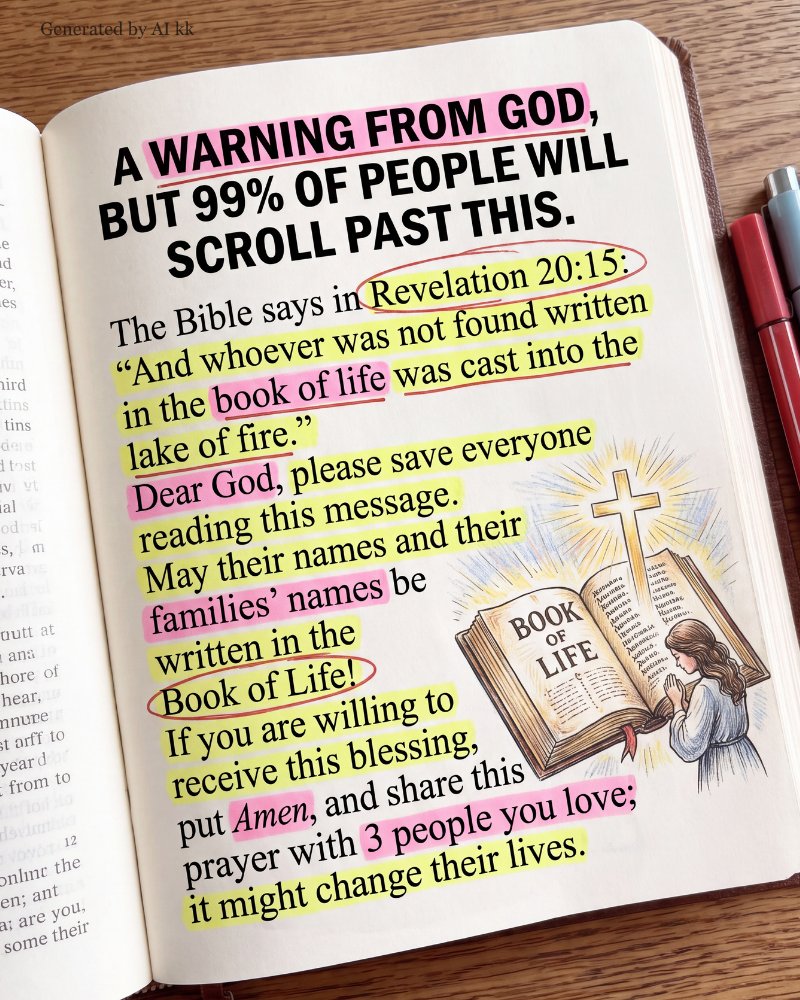 Generated by AI kk
A WARNING FROM GOD,
BUT 99% OF PEOPLE WILL
SCROLL PAST THIS.
The Bible says in Revelation 20:15:
“And whoever was not found written
in the book of life was cast into the
lake of fire.”
Dear God, please save everyone
reading this message.
May their names and their
families’ names be
written in the
Book of Life!
If you are willing to
receive this blessing,
put Amen, and share this
prayer with 3 people you love;
it might change their lives.
BOOK
OF
LIFE
hore of
hear,
year
from to
12
the
en; ant
a; are you,
some their